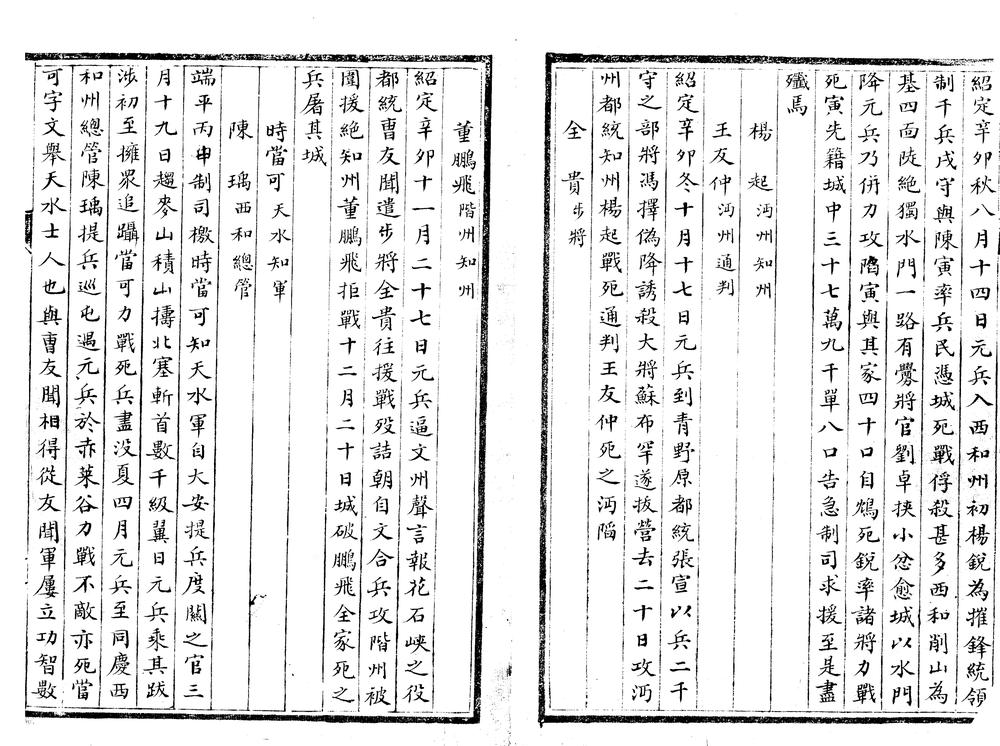 紹定辛卯秋八月十四日元兵入西和州初楊銳為摧鋒統領
制千兵戍守與陳寅率兵民憑城死戰俘殺甚多西和削山為
基四面陡絕獨水門一路有釁將官劉卓挾小忿愈城以水門
降元兵乃併力攻陷寅與其家四十口自鴆死銳率諸將力戰
死寅先籍城中三十七萬九千單八口告急制司求援至是盡
殲焉
楊起沔州知州
王友仲沔州通判
紹定辛卯冬十月十七日元兵到青野原都統張宣以兵二千
守之部將馮擇偽降誘殺大將蘇布罕遂拔營去二十日攻沔
州都統知州楊起戰死通判王友仲死之沔陷
全貴步將
董鵬飛階州知州
紹定辛卯十一月二十七日元兵逼文州聲言報花石峽之役
都統曹友聞遣步將全貴往援戰歿詰朝自文合兵攻階州被
圍援絕知州董鵬飛拒戰十二月二十日城破鵬飛全家死之
兵屠其城
時當可天水知軍
陳瑀西和總管
端平丙申制司檄時當可知天水軍自大安提兵度關之官三
月十九日趨麥山積山擣北塞斬首數千級翼日元兵乘其跋
涉初至擁眾追躡當可力戰死兵盡没夏四月元兵至同慶西
和州總管陳瑀提兵巡屯遇元兵於赤萊谷力戰不敵亦死當
可字文舉天水士人也與曹友聞相得從友聞軍屢立功智數